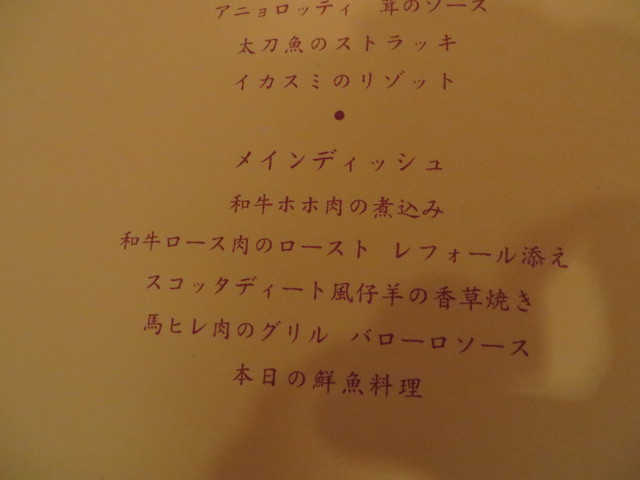 アニョロッティ 茸のソース
太刀魚のストラッキ
イカスミのリゾット
●
メインディッシュ
和牛ホホ肉の煮込み
和牛ロース肉のロースト レフォール添え
スコッタディート風仔羊の香草焼き
馬ヒレ肉のグリル バローロソース
本日の鮮魚料理